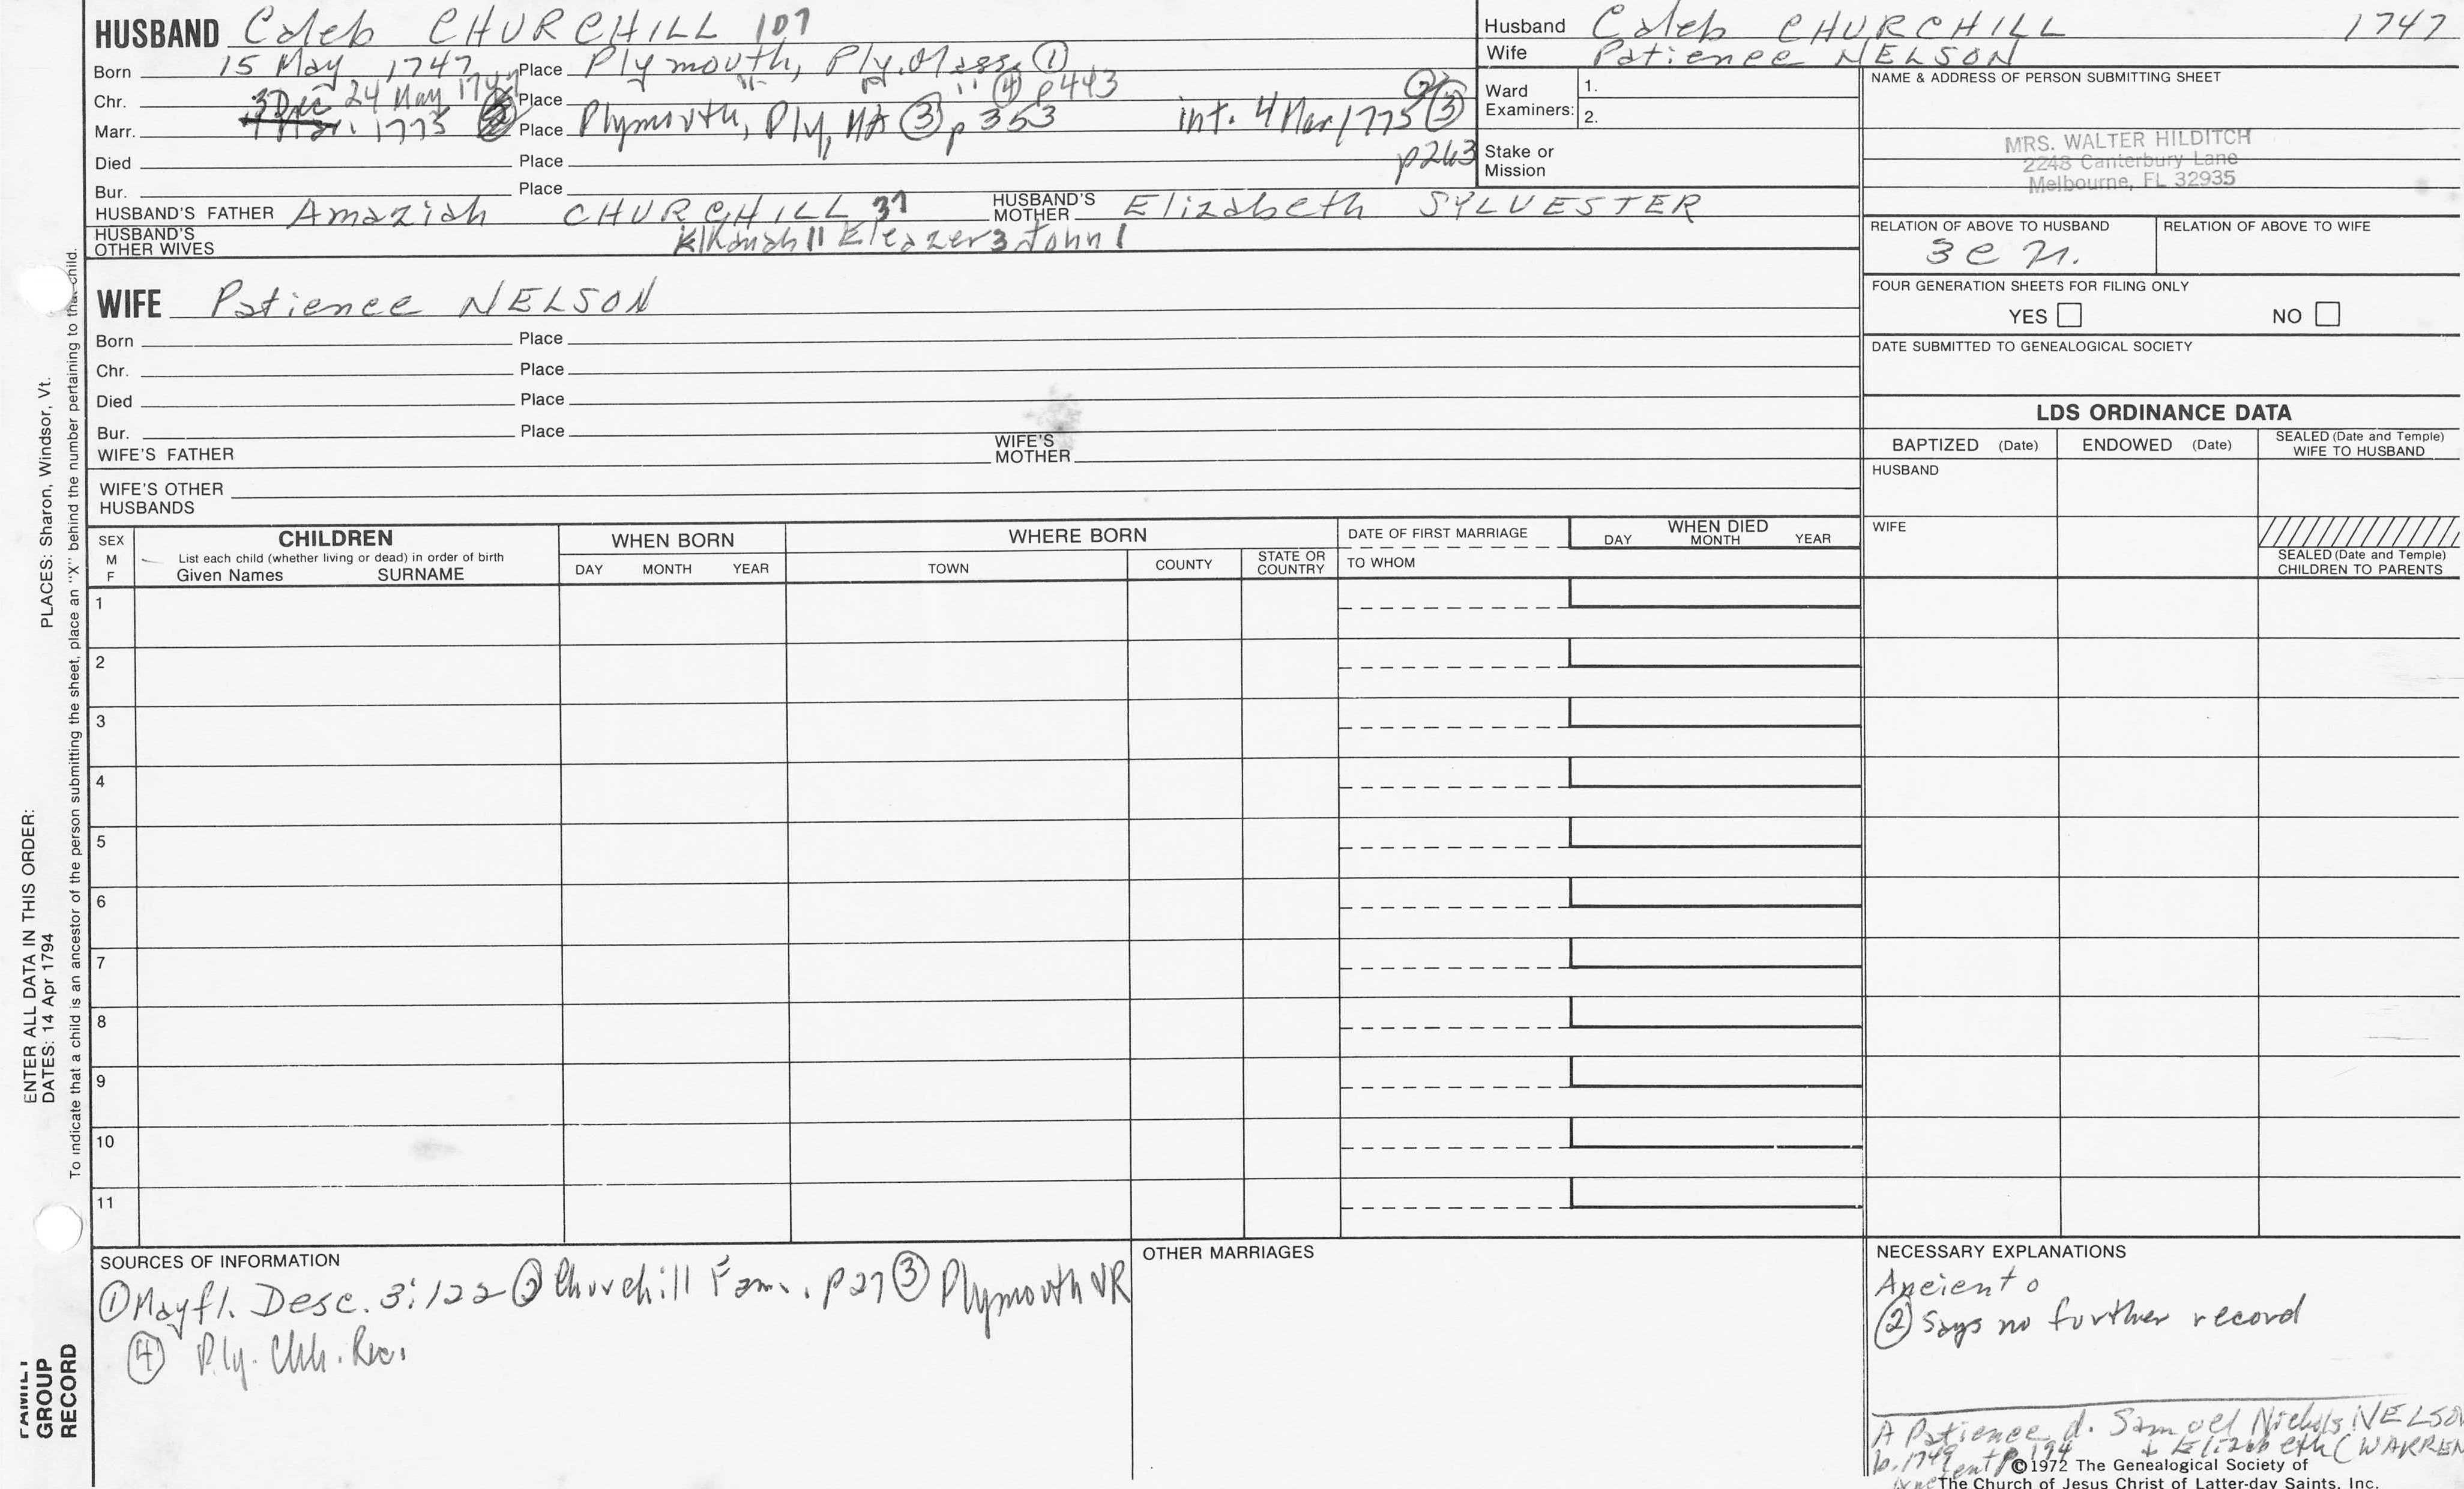 HUSBAND Caleb CHURCHILL 107
Born 15 May 1747 Place Plymouth, Ply. Mass ①
Chr. 24 May 1747 Place " " " ④ p443
Marr. 3 Dec 1775 Place Plymouth, Ply, MA ③ p 353 int. 4 Mar 1775 ② ③ p263
Died Place
Bur. Place
HUSBAND'S FATHER Amaziah CHURCHILL 37 HUSBAND'S MOTHER Elizabeth SYLVESTER
HUSBAND'S OTHER WIVES Elkanah 11 Eleazer 3 John 1
WIFE Patience NELSON
Born Place
Chr. Place
Died Place
Bur. Place
WIFE'S FATHER WIFE'S MOTHER
WIFE'S OTHER HUSBANDS
Husband Caleb CHURCHILL 1747
Wife Patience NELSON
Ward Examiners: 1.
2.
Stake or Mission
NAME & ADDRESS OF PERSON SUBMITTING SHEET
MRS. WALTER HILDITCH
2248 Canterbury Lane
Melbourne, FL 32935
RELATION OF ABOVE TO HUSBAND RELATION OF ABOVE TO WIFE
FOUR GENERATION SHEETS FOR FILING ONLY
YES NO
DATE SUBMITTED TO GENEALOGICAL SOCIETY
LDS ORDINANCE DATA
BAPTIZED (Date) ENDOWED (Date) SEALED (Date and Temple) WIFE TO HUSBAND
HUSBAND
WIFE
SEALED (Date and Temple) CHILDREN TO PARENTS
SEX M F
CHILDREN
List each child (whether living or dead) in order of birth
Given Names SURNAME
WHEN BORN
DAY MONTH YEAR
WHERE BORN
TOWN COUNTY STATE OR COUNTRY
DATE OF FIRST MARRIAGE
TO WHOM
WHEN DIED
DAY MONTH YEAR
1
2
3
4
5
6
7
8
9
10
11
SOURCES OF INFORMATION
① Mayfl. Desc. 3:122 ② Churchill Fam. p 27 ③ Plymouth VR
④ Ply. Chh. Rec.
OTHER MARRIAGES
NECESSARY EXPLANATIONS
② Says no further record
A Patience d. Samuel Nichols NELSON
b. 1749 & Elizabeth (WARREN
p 194
©1972 The Genealogical Society of
The Church of Jesus Christ of Latter-day Saints, Inc.
PLACES: Sharon, Windsor, Vt.
ENTER ALL DATA IN THIS ORDER:
DATES: 14 Apr 1794
To indicate that a child is an ancestor of the person submitting the sheet, place an "X" behind the number pertaining to that child.
FAMILY
GROUP
RECORD